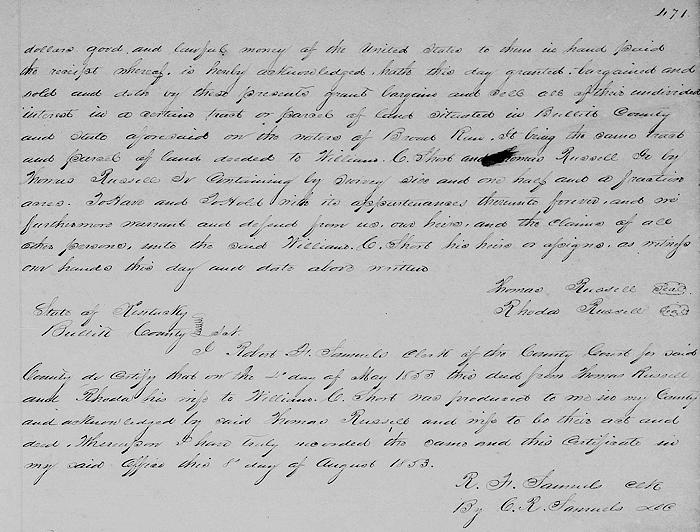 471
dollars good and lawful money of the United States to them in hand paid
the receipt whereof, is hereby acknowledged, hath this day granted, bargained and
sold and doth by these presents grant bargain and sell all of their undivided
interest in a certain tract or parcel of land situated in Bullitt County
and State aforesaid on the waters of Broad Run. It being the same tract
and parcel of land deeded to William. C. Short and Thomas Russell Jr by
Thomas Russell Sr Containing by survey six and one half and a fraction
acres. To Have and To Hold with its appurtenances thereunto forever, and we
furthermore warrant and defend from us, our heirs, and the claims of all
other persons, unto the said William. C. Short his heirs or assigns, as witness
our hands this day and date above written
Thomas Russell Seal
Rhoda Russell Seal
State of Kentucky
Bullitt County Sct.
I Robert F. Samuels Clerk of the County Court for said
County do Certify that on the day of May 1853 this deed from Thomas Russell
and Rhoda his wife to William. C. Short was produced to me in my County
and acknowledged by said Thomas Russell and wife to be their act and
deed. Whereupon I have truly recorded the same and this Certificate in
my said office this 8th day of August 1853.
R. F. Samuels Clk
By C. R. Samuels DC